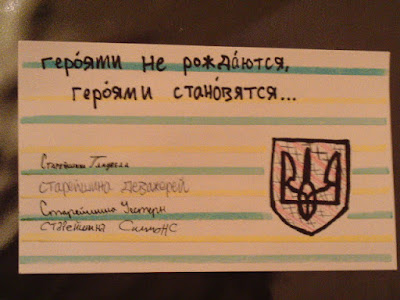 геро́ями не рожда́ются,
геро́ями стано́вятся...
Старейшина
старейшина
Старейшина Уестерн
старейшина Симонс